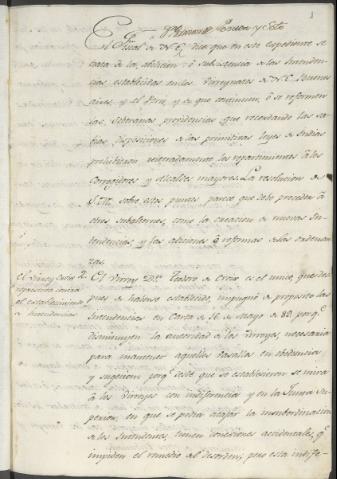 1
El Fiscal de N. E. dice que en este expediente se
trata de la abolicion ó subsistencia de las Intenden-
cias establecidas en los Virreynatos de N. E. Buenos
aires, y el Perú, y de que continuen, ó se reformen
las Soberanas providencias que recordando las sa-
bias disposiciones de las primitivas leyes de Indias
prohibieron reiteradamente los repartimientos á los
Corregidores y Alcaldes mayores. La resolucion de
S. M. sobre estos puntos parece que debe preceder á
otros subalternos, como la creacion de nuevas In-
tendencias, y las adiciones ó reformas de las ordenan-
zas.
El Virrey Croix
representa contra
el establecimiento
de Intendencias
El Virrey Dn. Teodoro de Croix es el unico, que des-
pues de haberse establecido, impugnó de proposito las
Intendencias en Carta de 16 de Mayo de 89 porq.e
disminuyen la autoridad de los Virreyes, necesaria
para mantener aquellos Vasallos en obediencia
y sugecion: porq.e desde que se establecieron se mira
á los Virreyes con indiferencia; y en la Junta Su-
perior, en que se podia atajar la insubordinacion
de los Intendentes, tienen conexiones accidentales, q.e
impiden el remedio al desorden; pero esta indife-